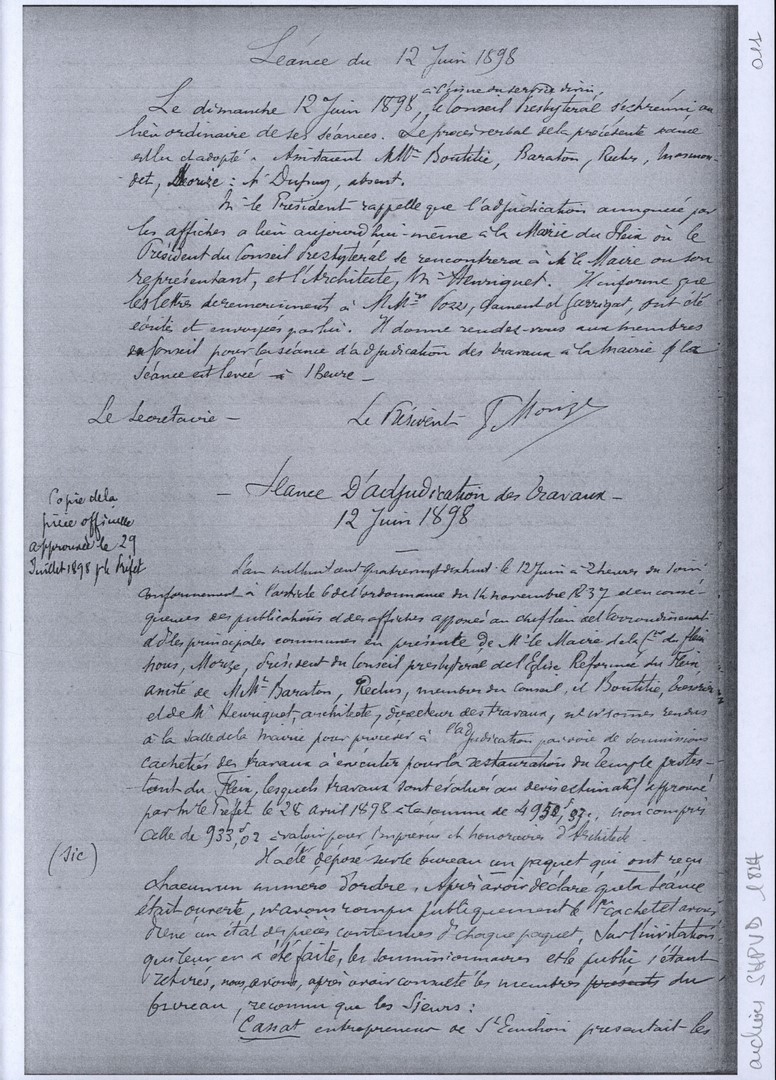 011
Séance du 12 Juin 1898
à l'issue du service divin,
Le dimanche 12 Juin 1898, le Conseil Presbytéral s'est réuni au
lieu ordinaire de ses séances. Le procès-verbal de la précédente séance
est lu et adopté. Assistaient MMrs Boutitié, Baraton, Reclus,
Morize : Mr Dupuy, absent.
Mr le Président rappelle que l'adjudication annoncée par
les affiches a lieu aujourd'hui-même à la Mairie du Fleix où le
Président du Conseil Presbytéral se rencontrera à Mr le Maire ou son
représentant, et l'Architecte, Mr Henriquet. Il informe que
les lettres de remerciements à MMrs Pozzi, Clament et Garrigat, ont été
écrites et envoyées par lui. Il donne rendez-vous aux membres
du Conseil pour la séance d'adjudication des travaux à la Mairie & la
Séance est levée à 1 heure –
Le Secrétaire – Le Président Morize
– Séance D'adjudication des travaux –
12 Juin 1898
Copie de la
pièce officielle
approuvée le 29
Juillet 1898 p. le Préfet
L'an mil huit cent quatre vingt dix huit le 12 Juin à 2 heures du soir
conformément à l'article 6 de l'ordonnance du 14 novembre 1837 et en consé-
quence des publications et des affiches apposées au chef lieu de l'arrondissement
et des principales communes en présence de Mr le Maire de la Cne du Fleix
nous, Morize, Président du Conseil presbytéral de l'Eglise Réformée du Fleix
assisté de MMrs Baraton, Reclus, membres du Conseil, et Boutitié, trésorier
et de Mr Henriquet architecte, directeur des travaux, nous sommes rendus
à la salle de la mairie pour procéder à l'adjudication par voie de soumissions
cachetées des travaux à exécuter pour la restauration du temple protes-
tant du Fleix, lesquels travaux sont évalués au devis estimatif approuvé
par Mr le Préfet le 28 avril 1898 à la somme de non compris
celle de 933f,02 à valoir pour imprévus et honoraires d'Architecte.
(Sic)
Il a été déposé sur le bureau un paquet qui ont reçu
chacun un numéro d'ordre. Après avoir déclaré que la Séance
était ouverte, nous avons rompu publiquement le 1er cachet et avons
dressé un état des pièces contenues dans chaque paquet. Sur l'invitation
qui leur en a été faite, les soumissionnaires et le public s'étant
retirés, nous avons, après avoir consulté les membres présents du
bureau, reconnu que les Sieurs :
Cassat entrepreneur de St Emilion présentait les
archives SHPVD 1824